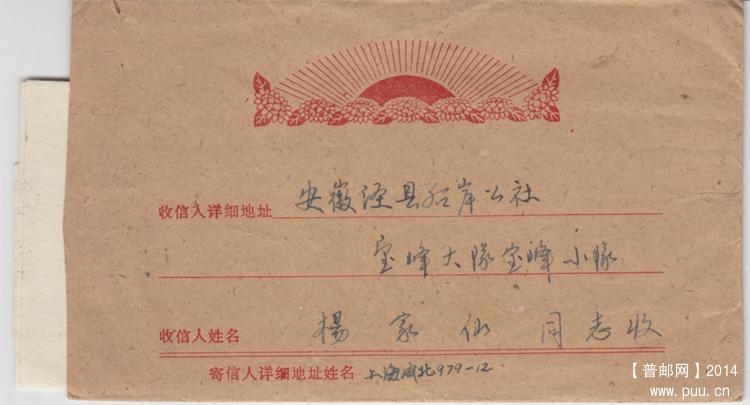 收信人详细地址 安徽泾县后岸公社
宝峰大队宝峰小队
收信人姓名 楊家仙 同志收
寄信人详细地址姓名 上海成北979-12
【普邮网】2014
www.puu.cn